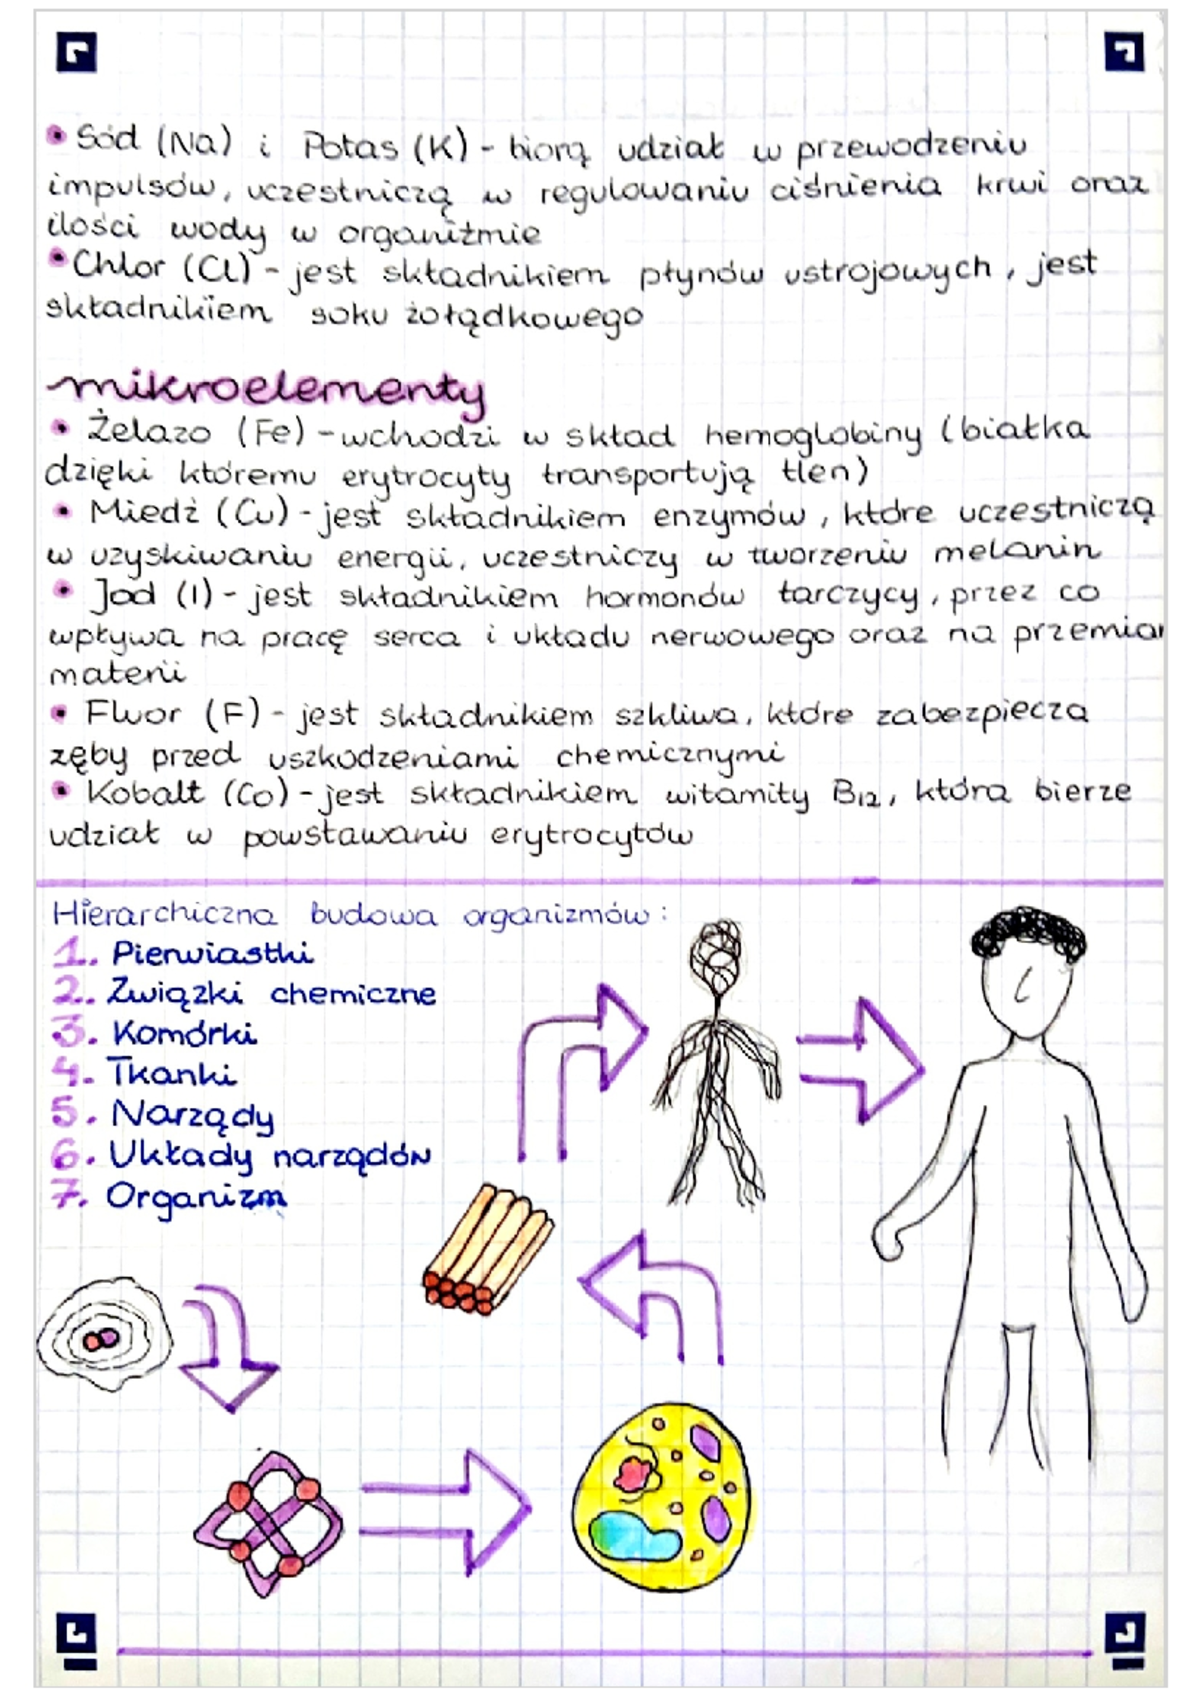 • Sód (Na) i Potas (K) - biorą udział w przewodzeniu
impulsów, uczestniczą w regulowaniu ciśnienia krwi oraz
ilości wody w organiźmie
• Chlor (Cl) - jest składnikiem płynów ustrojowych, jest
składnikiem soku żołądkowego
mikroelementy
• Żelazo (Fe) - wchodzi w skład hemoglobiny (białka
dzięki któremu erytrocyty transportują tlen)
• Miedź (Cu) - jest składnikiem enzymów, które uczestniczą
w uzyskiwaniu energii, uczestniczy w tworzeniu melanin
• Jod (I) - jest składnikiem hormonów tarczycy, przez co
wpływa na pracę serca i układu nerwowego oraz na przemian
materii
• Fluor (F) - jest składnikiem szkliwa, które zabezpiecza
zęby przed uszkodzeniami chemicznymi
• Kobalt (Co) - jest składnikiem witamity B₁₂, która bierze
udział w powstawaniu erytrocytów
Hierarchiczna budowa organizmów:
1. Pierwiastki
2. Związki chemiczne
3. Komórki
4. Tkanki
5. Narządy
6. Układy narządów
7. Organizm